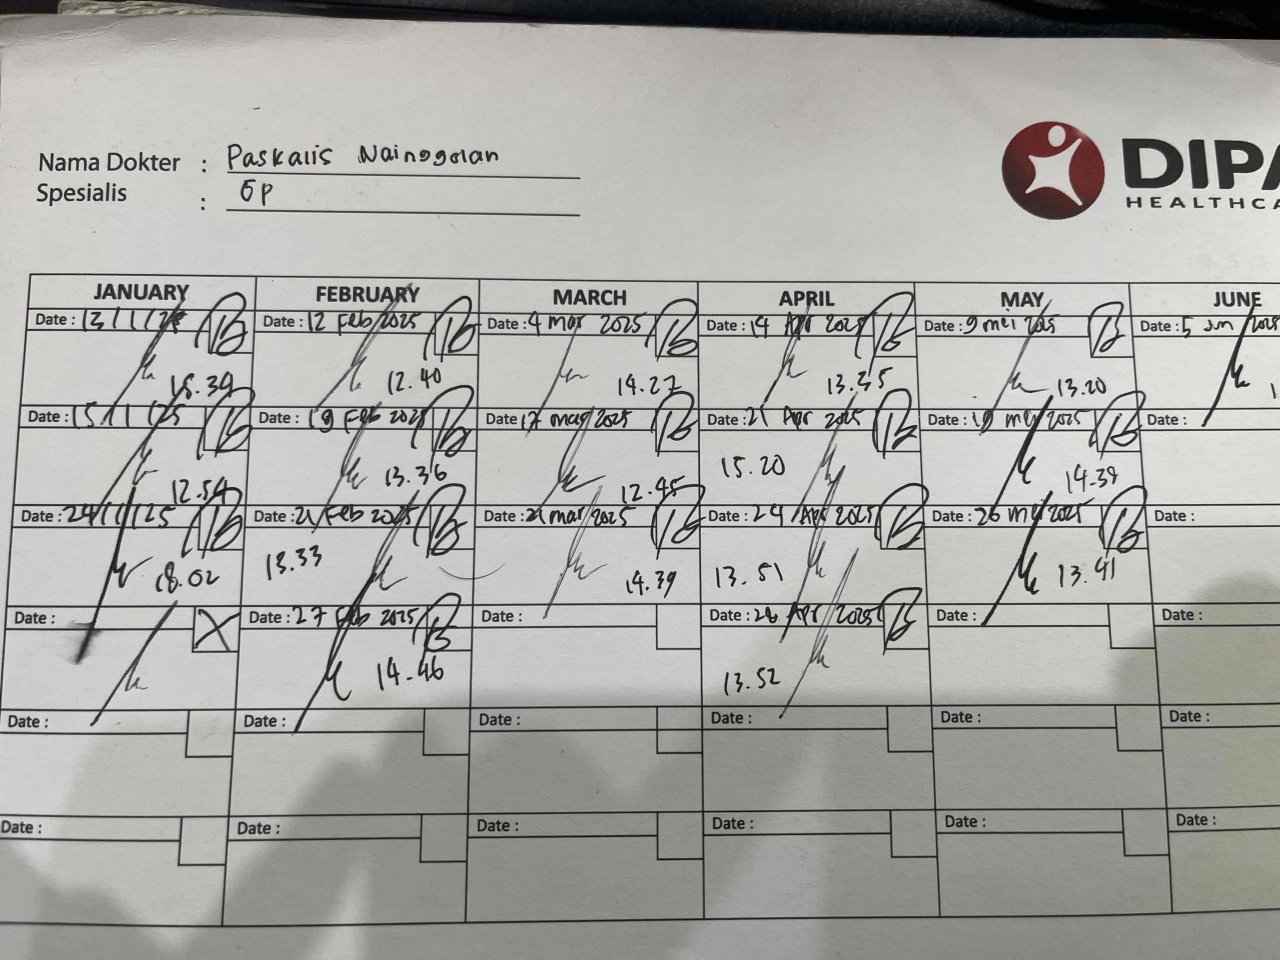 Nama Dokter : Paskalis Nainggolan
Spesialis : GP
DIPA
HEALTHCA
JANUARY FEBRUARY MARCH APRIL MAY JUNE
Date : 13/1/25 Date : 12 Feb 2025 Date : 4 mar 2025 Date : 14 Apr 2025 Date : 9 mei 2025 Date : 5 Jun 2025
18.39 12.40 14.27 13.35 13.20
Date : 15/1/25 Date : 19 Feb 2025 Date : 17 mar 2025 Date : 21 Apr 2025 Date : 19 mei 2025 Date :
12.54 13.36 12.45 15.20 14.39
Date : 24/1/25 Date : 21 Feb 2025 Date : 21 mar 2025 Date : 24 Apr 2025 Date : 26 mei 2025 Date :
18.02 13.33 14.39 13.51 13.41
Date : Date : 27 Feb 2025 Date : Date : 28 Apr 2025 Date : Date :
14.46 13.52
Date : Date : Date : Date : Date : Date :
Date : Date : Date : Date : Date : Date :